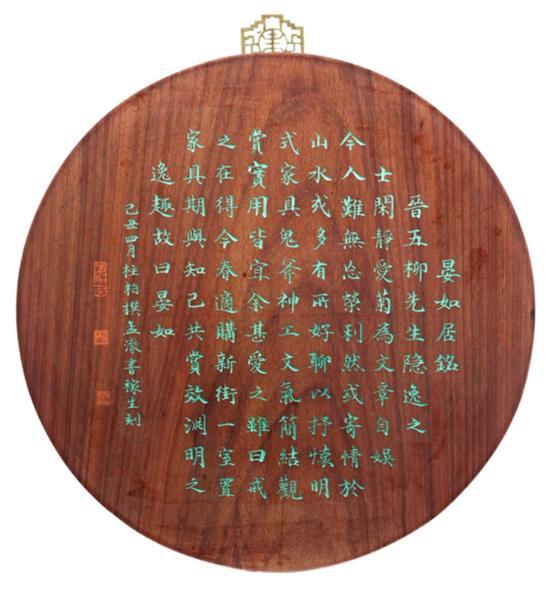 晏如居銘
晉五柳先生隐逸之
士閑靜愛菊為文章自娱
今人難無忘榮利然或寄情於
山水或多有所好聊以抒懷明
式家具鬼斧神工文氣簡結觀
賞實用皆宜余甚愛之雖曰戒
之在得今春適購新街一室置
家具期與知己共賞效渊明之
逸趣故曰晏如
己丑四月柱柏撰孟澂書稼生刻